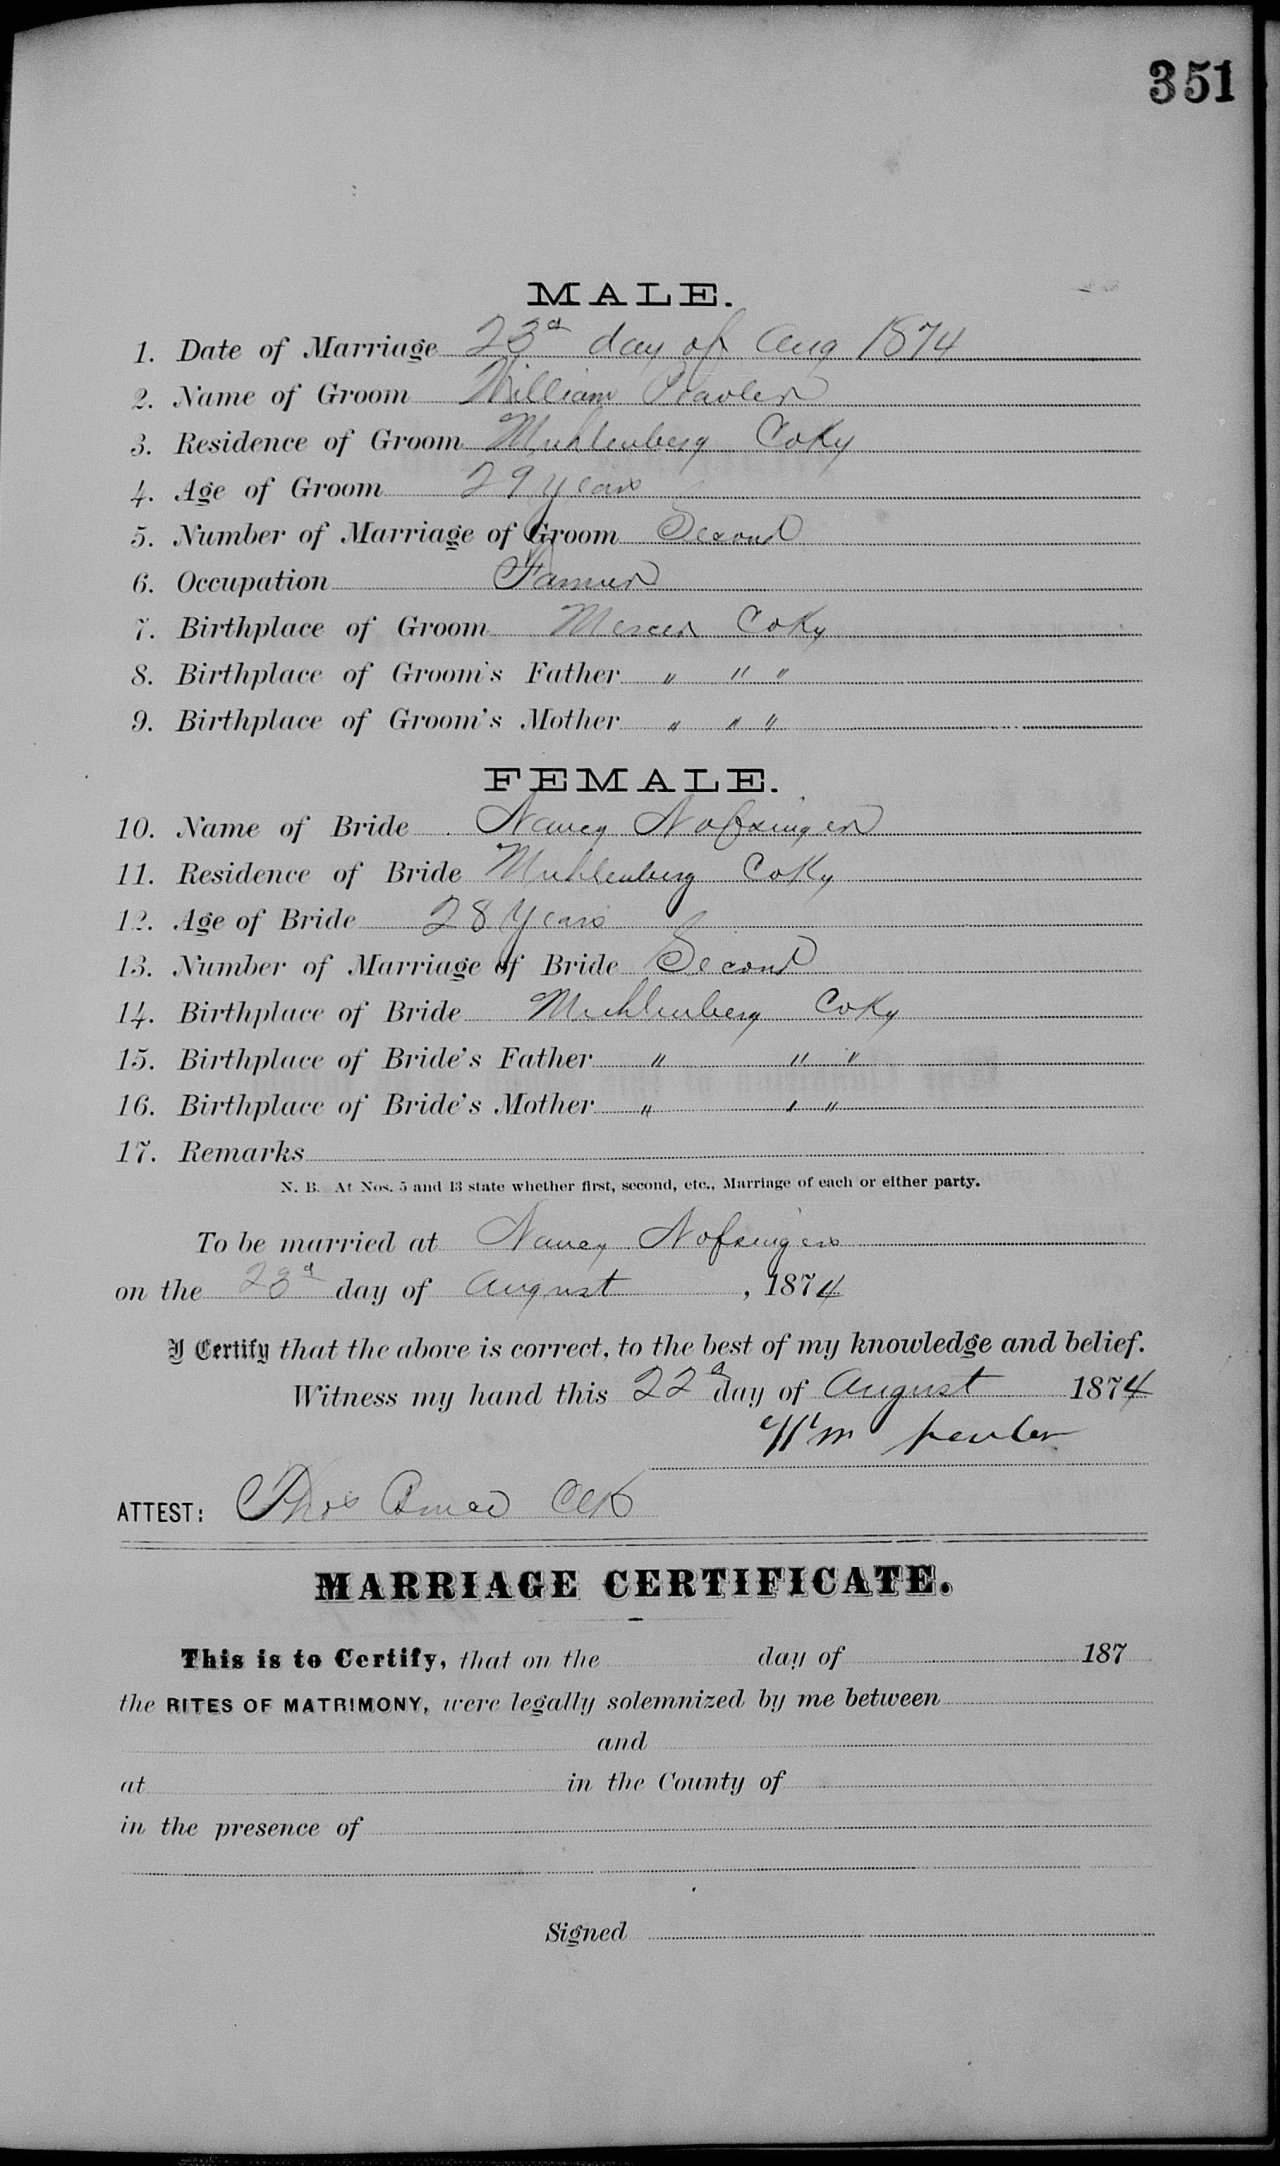 351
MALE.
1. Date of Marriage 23d day of Aug 1874
2. Name of Groom William
3. Residence of Groom Muhlenberg Co Ky
4. Age of Groom 29 years
5. Number of Marriage of Groom Second
6. Occupation Farmer
7. Birthplace of Groom Mercer Co Ky
8. Birthplace of Groom's Father " " "
9. Birthplace of Groom's Mother " " "
FEMALE.
10. Name of Bride Nancy Nofsinger
11. Residence of Bride Muhlenberg Co Ky
12. Age of Bride 28 Years
13. Number of Marriage of Bride Second
14. Birthplace of Bride Muhlenberg Co Ky
15. Birthplace of Bride's Father " " "
16. Birthplace of Bride's Mother " " "
17. Remarks
N. B. At Nos. 5 and 13 state whether first, second, etc., Marriage of each or either party.
To be married at Nancy Nofsingers
on the 23d day of August, 1874
I Certify that the above is correct, to the best of my knowledge and belief.
Witness my hand this 22d day of August 1874
Wm
ATTEST: Thos Clk
MARRIAGE CERTIFICATE.
This is to Certify, that on the day of 187
the RITES OF MATRIMONY, were legally solemnized by me between
and
at in the County of
in the presence of
Signed